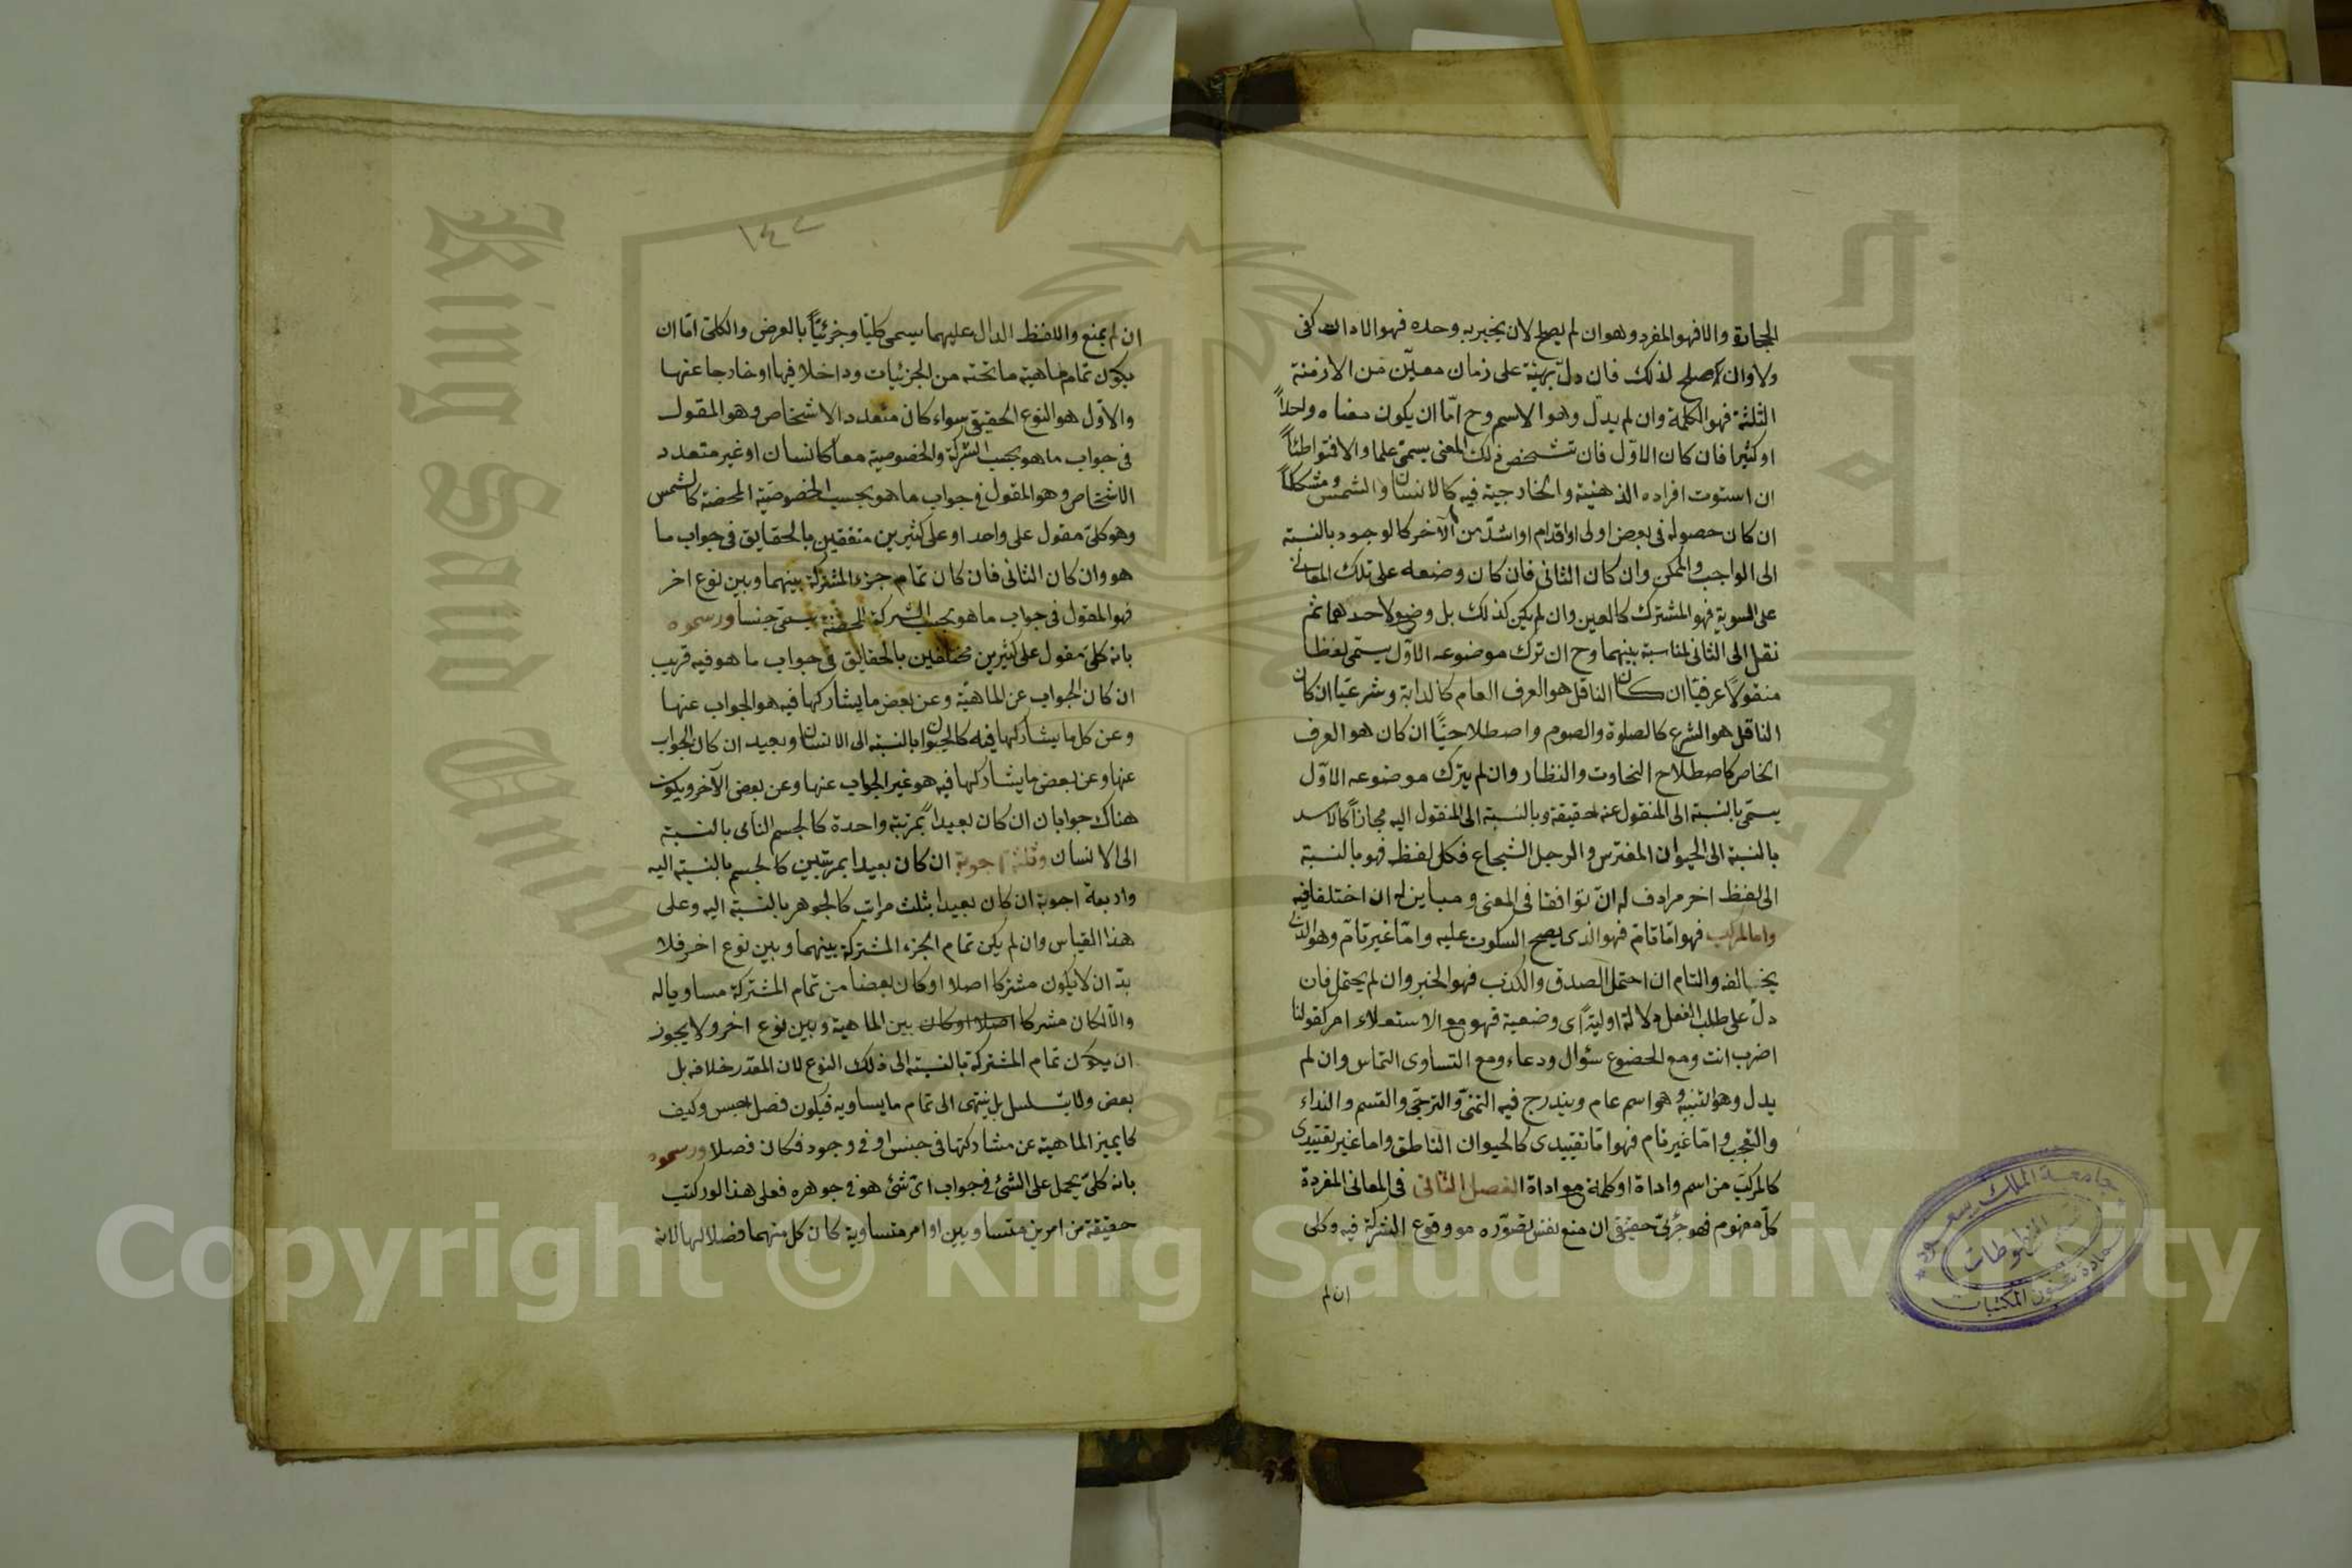 الحجارة والا فهو المفرد وهو ان لم يصلح لان يخبر به وحده فهو الاداة كفى
ولا وان صلح لذلك فان دلّ بهيئة على زمان معيّن من الازمنة
الثلثة فهو الكلمة وان لم يدل وهو الاسم وح امّا ان يكون معناه واحداً
او كثيرا فان كان الاوّل فان تشخص ذلك المعنى يسمّى علما والا فمتواطئاً
ان استوت افراده الذهنية والخارجية فيه كالانسان والشمس ومشككاً
ان كان حصوله فى بعض اولى او اقدام او اشدّ من الآخر كالوجود بالنسبة
الى الواجب والممكن وان كان الثانى فان كان وضعه على تلك المعانى
على السوية فهو المشترك كالعين وان لم يكن كذلك بل وضع لاحدهما ثم
نقل الى الثانى لمناسبة بينهما وح ان ترك موضوعه الاوّل يسمّى لفظا
منقولاً عرفيّا ان كان الناقل هو العرف العام كالدابة وشرعيّا ان كان
الناقل هو الشرع كالصلوة والصوم واصطلاحيّاً ان كان هو العرف
الخاص كاصطلاح النحاوت والنظار وان لم يترك موضوعه الاوّل
يسمّى بالنسبة الى المنقول عنه حقيقة وبالنسبة الى المنقول اليه مجازاً كالاسد
بالنسبة الى الحيوان المفترس والرجل الشجاع فكل لفظ فهو بالنسبة
الى لفظ اخر مرادف له انّ توافقا فى المعنى ومباين له ان اختلفا فيه
واما المركب فهو امّا تامّ فهو الذى يصح السكوت عليه وامّا غير تامّ وهو الذى
يخالفه والتام ان احتمل الصدق والكذب فهو الخبر وان لم يحتمل فان
دلّ على طلب الفعل دلالة اوليّة اى وضعية فهو مع الاستعلاء امر كقولنا
اضرب انت ومع الخضوع سئوال ودعاء ومع التساوى التماس وان لم
يدل وهو التنبيه وهو اسم عام ويندرج فيه التمنّى والترجّى والقسم والنداء
والتعجب وامّا غير تام فهو امّا تقييدى كالحيوان الناطق واما غير تقييدى
كالمركّب من اسم واداة او كلمة مع اداة الفصل الثانى فى المعانى المفردة
كلّ مفهوم فهو جزئىّ حقيقى ان منع نفس تصوّره مو وقوع الشركة فيه وكلى
ان لم
١٤٢
ان لم يمنع واللفظ الدال عليهما يسمى كليّا وجزئيّاً بالعرض والكلىّ امّا ان
يكون تمام ماهية ما تحته من الجزئيات وداخلا فيها او خارجا عنها
والاوّل هو النوع الحقيقى سواء كان متعدد الاشخاص وهو المقول
فى جواب ما هو بحسب الشركة والخصوصية معا كالانسان او غير متعدد
الاشخاص وهو المقول فى جواب ما هو بحسب الخصوصيّة المحضة كالشمس
وهو كلىّ مقول على واحد او على كثيرين متفقين بالحقايق فى جواب ما
هو وان كان الثانى فان كان تمام جزء المشتركة بينهما وبين نوع اخر
فهو المقول فى جواب ما هو بحسب الشركة المحضة يسمّى جنسا ورسموه
بانه كلىّ مقول على كثيرين مختلفين بالحقايق فى جواب ما هو فيه قريب
ان كان الجواب عن الماهيّة وعن بعض ما يشاركها فيه هو الجواب عنها
وعن كل ما يشاركها فيه كالحيوان بالنسبة الى الانسان وبعيد ان كان الجواب
عنها وعن بعض ما يشاركها فيه هو غير الجواب عنها وعن بعض الآخر ويكون
هناك جوابان ان كان بعيداً بمرتبة واحدة كالجسم النامى بالنسبة
الى الانسان وثلثة اجوبة ان كان بعيدا بمرتبتين كالجسم بالنسبة اليه
واربعة اجوبة ان كان بعيدا بثلث مراتب كالجوهر بالنسبة اليه وعلى
هذا القياس وان لم يكن تمام الجزء المشتركة بينهما وبين نوع اخر فلا
بدّ ان لا يكون مشتركا اصلا او كان بعضا من تمام المشتركة مساويا له
والّا لكان مشركا اصلا او كان بين الماهية وبين نوع اخر ولا يجوز
ان يكون تمام المشتركة بالنسبة الى ذلك النوع لان المقدّر خلافه بل
بعض ولا يتسلسل بل ينتهى الى تمام ما يساويه فيكون فصل جنس وكيف
كا يميز الماهية عن مشاركتها فى جنس او فى وجود فكان فصلا ورسموه
بانه كلىّ يحمل على الشئ فى جواب اىّ شئ هو فى جوهره فعلى هذا لو ركّب
حقيقة من امرين متساويين او امر متساوية كان كل منهما فضلا لها لانه
جامعة الملك سعود
المخطوطات
عمادة شئون المكتبات
King Saud University
جامعة الملك سعود
Copyright © King Saud University